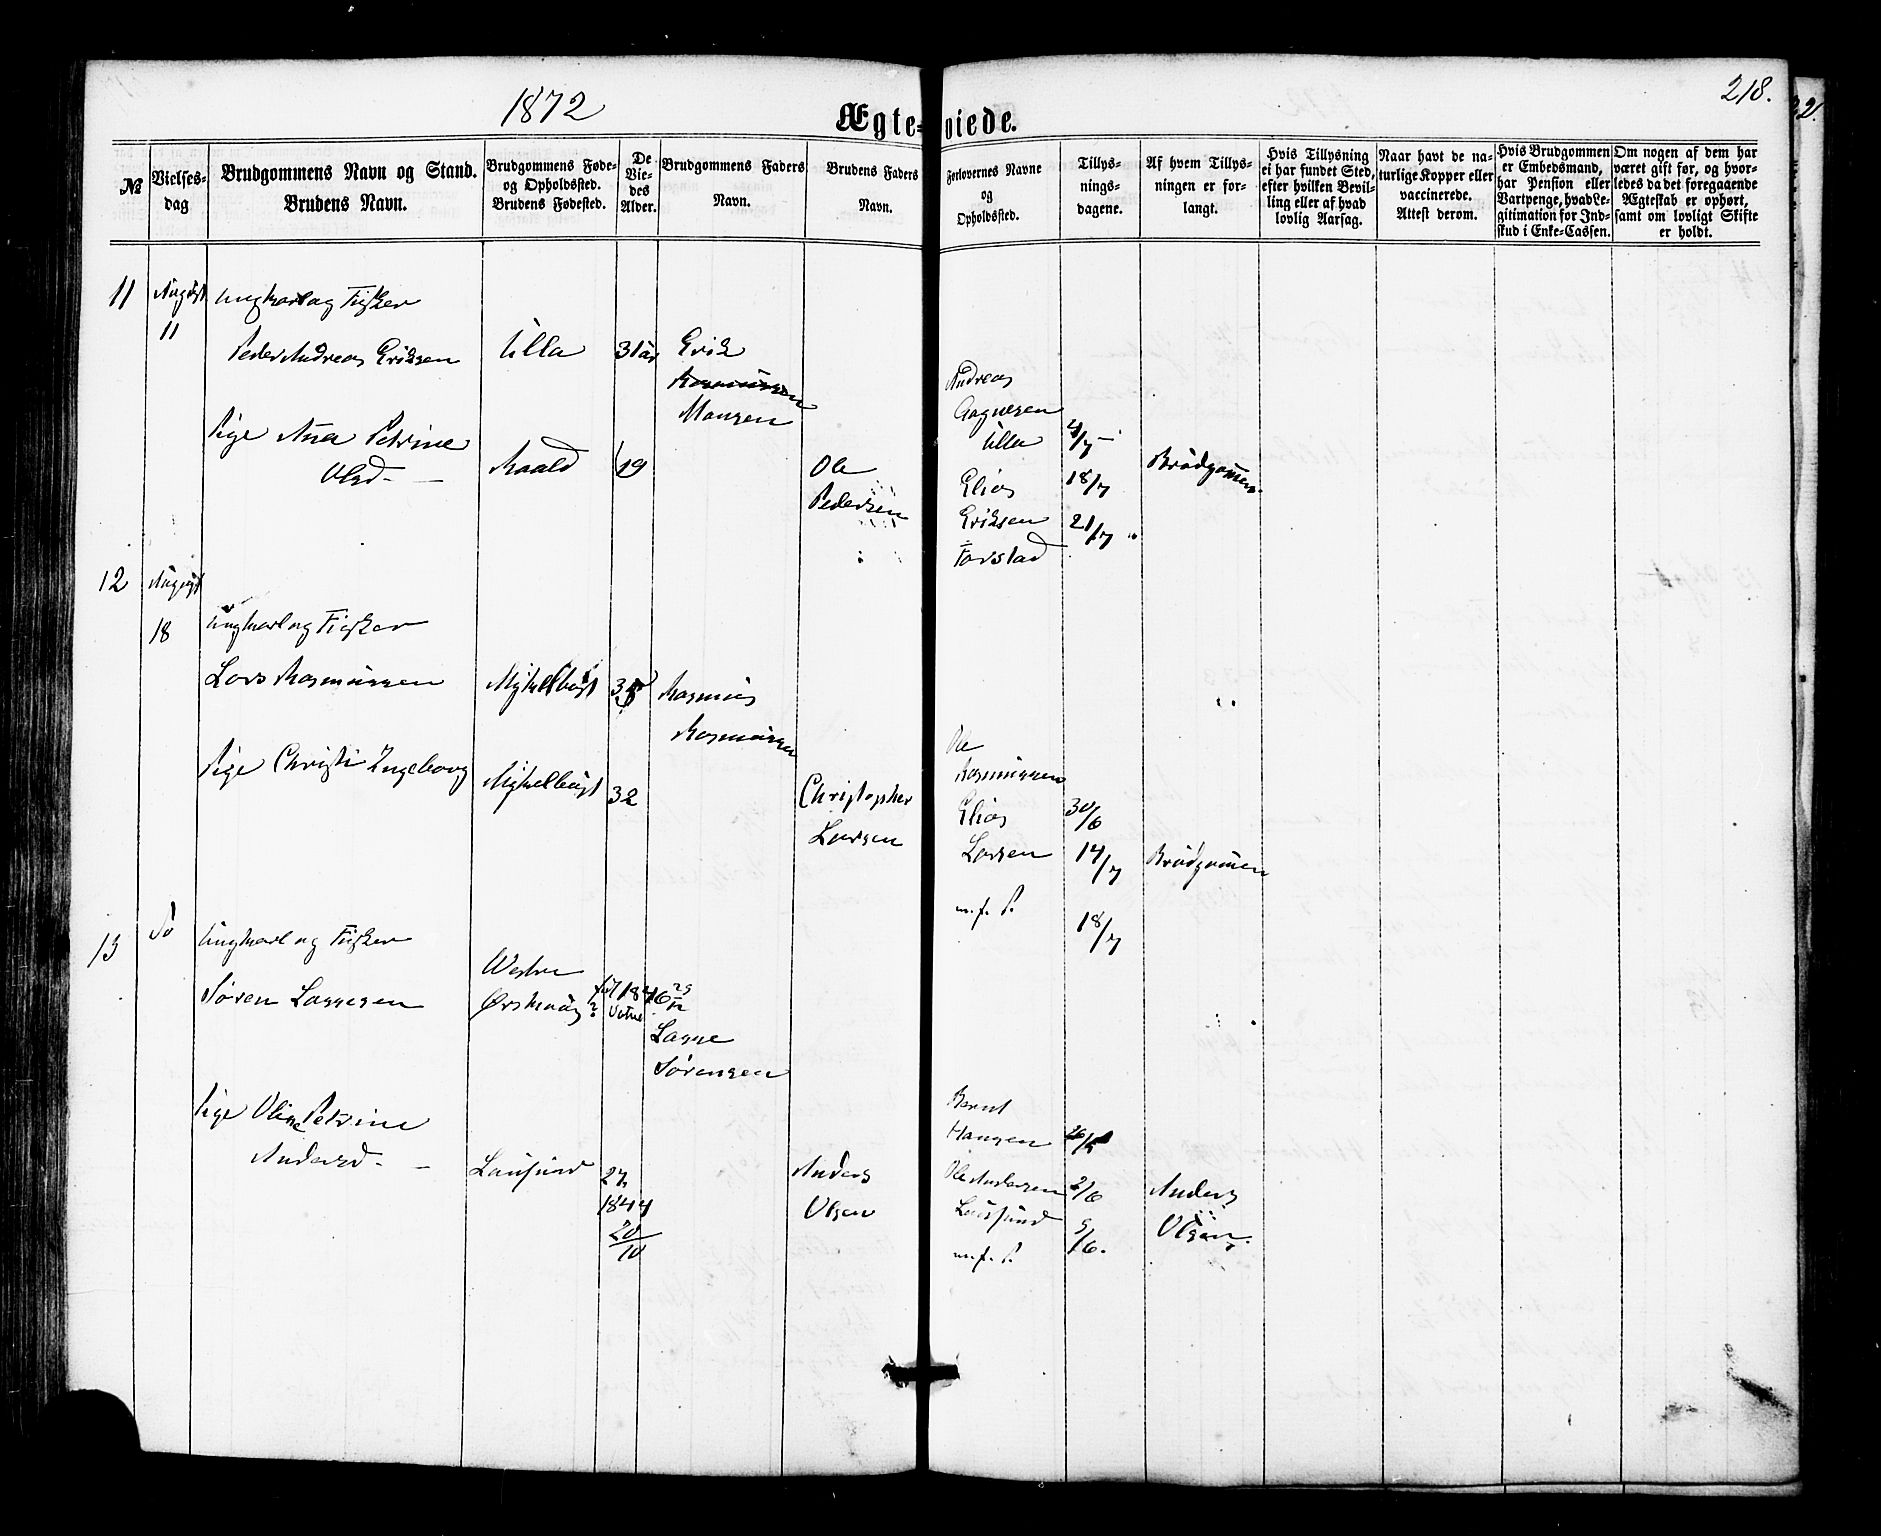 1872
218.
Ægte-viede.
№
Vielses-
dag
Brudgommens Navn og Stand.
Brudens Navn.
Brudgommens Føde-
og Opholdssted.
Brudens Fødested.
De
Vie-
des
Alder.
Brudgommens Faders
Navn.
Brudens Faders
Navn.
Forlovernes Navne
og
Opholdssted.
Tillys-
nings-
dagene.
Af hvem Tillys-
ningen er for-
langt.
Hvis Tillysning
ei har fundet Sted,
efter hvilken Bevil-
ling eller af hvad
lovlig Aarsag.
Naar havt de na-
turlige Kopper eller
vaccinerede.
Attest derom.
Hvis Brudgommen
er Embedsmand,
har Pension eller
Vartpenge, hvad Le-
gitimation for Ind-
skud i Enke-Cassen.
Om nogen af dem har
været gift før, og hvor-
ledes da det foregaaende
Ægteskab er ophørt,
samt om lovligt Skifte
er holdt.
11
August
11
Ungkarl og Fisker
Peder Andreas Eriksen
Ulla
31 aar
Erik
Rasmussen
Monsen
Pige Ana Petrine
Olsd-
Roald
19
Ole
Pedersen
Andreas
Aagnesen
Ulla
Elias
Eriksen
Farstad
4/7
18/7
21/7
Brudgommen
12
August
18
Ungkarl og Fisker
Lars Rasmussen
Myklebust
Rasmus
Rasmussen
Pige Christi Ingeborg
Myklebust
32
Christopher
Larsen
Ole
Rasmussen
Elias
Larsen
m.f. P.
30/6
14/7
18/7
Brudgommen
13
Ungkarl og Fisker
Søren Lassesen
Westre
Lasse
Sørensen
Pige Oline Petrine
Andersd-
Lausund
27
1844
20/10
Anders
Olsen
Bernt
Hansen
Ole Andersen
Lausund
m.f. P.
26/5
2/6
9/6.
Anders
Olsen